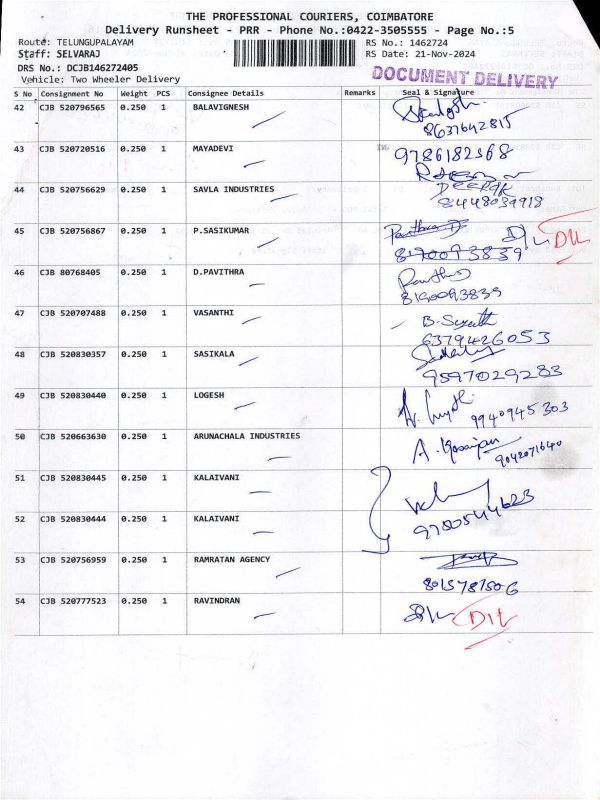 THE PROFESSIONAL COURIERS, COIMBATORE
Delivery Runsheet - PRR - Phone No.:0422-3505555 - Page No.:5
Route: TELUNGUPALAYAM RS No.: 1462724
Staff: SELVARAJ RS Date: 21-Nov-2024
DRS No.: DCJB146272405
DOCUMENT DELIVERY
Vehicle: Two Wheeler Delivery
S No Consignment No Weight PCS Consignee Details Remarks Seal & Signature
42 CJB 520796565 0.250 1 BALAVIGNESH
8637642815
43 CJB 520720516 0.250 1 MAYADEVI 9786182368
44 CJB 520756629 0.250 1 SAVLA INDUSTRIES DEEPAK
8448039918
45 CJB 520756867 0.250 1 P.SASIKUMAR Pavithra D D/L D/L
8190093839
46 CJB 80768405 0.250 1 D.PAVITHRA Pavithra
8190093839
47 CJB 520707488 0.250 1 VASANTHI
6379426053
48 CJB 520830357 0.250 1 SASIKALA
9597029283
49 CJB 520830440 0.250 1 LOGESH 9940945303
50 CJB 520663630 0.250 1 ARUNACHALA INDUSTRIES 9042071640
51 CJB 520830445 0.250 1 KALAIVANI
52 CJB 520830444 0.250 1 KALAIVANI
53 CJB 520756959 0.250 1 RAMRATAN AGENCY
8015787506
54 CJB 520777523 0.250 1 RAVINDRAN D/L D/L